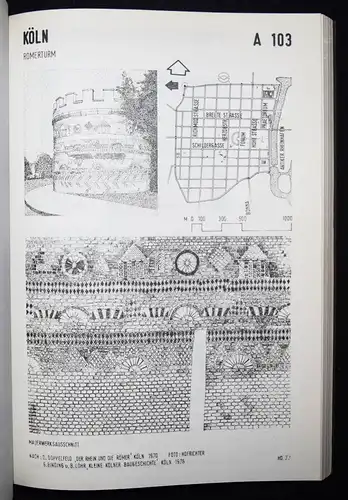 KÖLN
A 103
RÖMERTURM
BREITE STRASSE
SCHILDERGASSE
HOHE STRASSE
FORUM
M 0 100 200 500 1000
MAUERWERKSAUSSCHNITT
NACH: "DER RHEIN UND DIE RÖMER" KÖLN 1970 FOTO: HOFRICHTER
G. BINDING u. B. LÖHR, "KLEINE KÖLNER BAUGESCHICHTE" KÖLN 1976